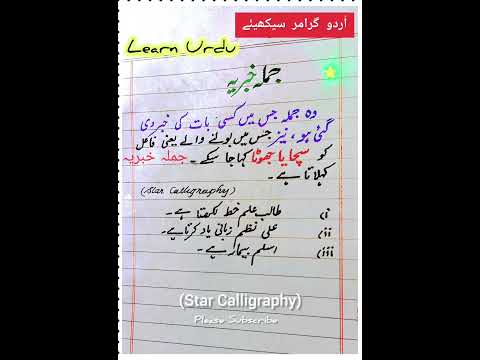 اُردو گرامر سیکھیئے
Learn Urdu
جملہ خبریہ
وہ جملہ جس میں کسی بات کی خبر دی
گئی ہو، نیز جس میں بولنے والے یعنی فاعل
کو سچا یا جھوٹا کہا جا سکے۔ جملہ خبریہ
کہلاتا ہے۔
(Star Calligraphy)
i) طالب علم خط لکھتا ہے۔
ii) علی نظم زبانی یاد کرتا ہے۔
iii) اسلم بیمار ہے۔
(Star Calligraphy)
Please Subscribe